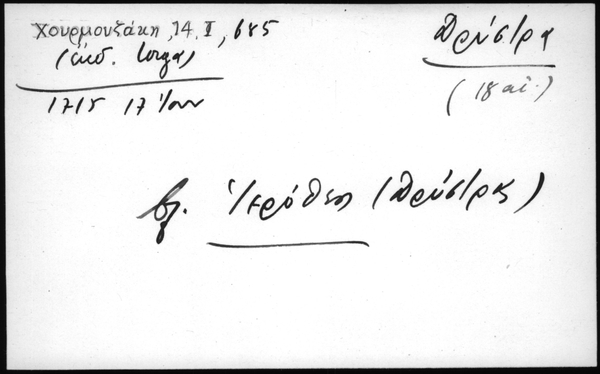 Χουρμουζάκη, 14, I, 685
(ἐκδ. Iorga)
1715 17 Ἰουν
Δρύστρα
(18 αἰ.)
βλ. Ἱερόθεος (Δρύστρας)